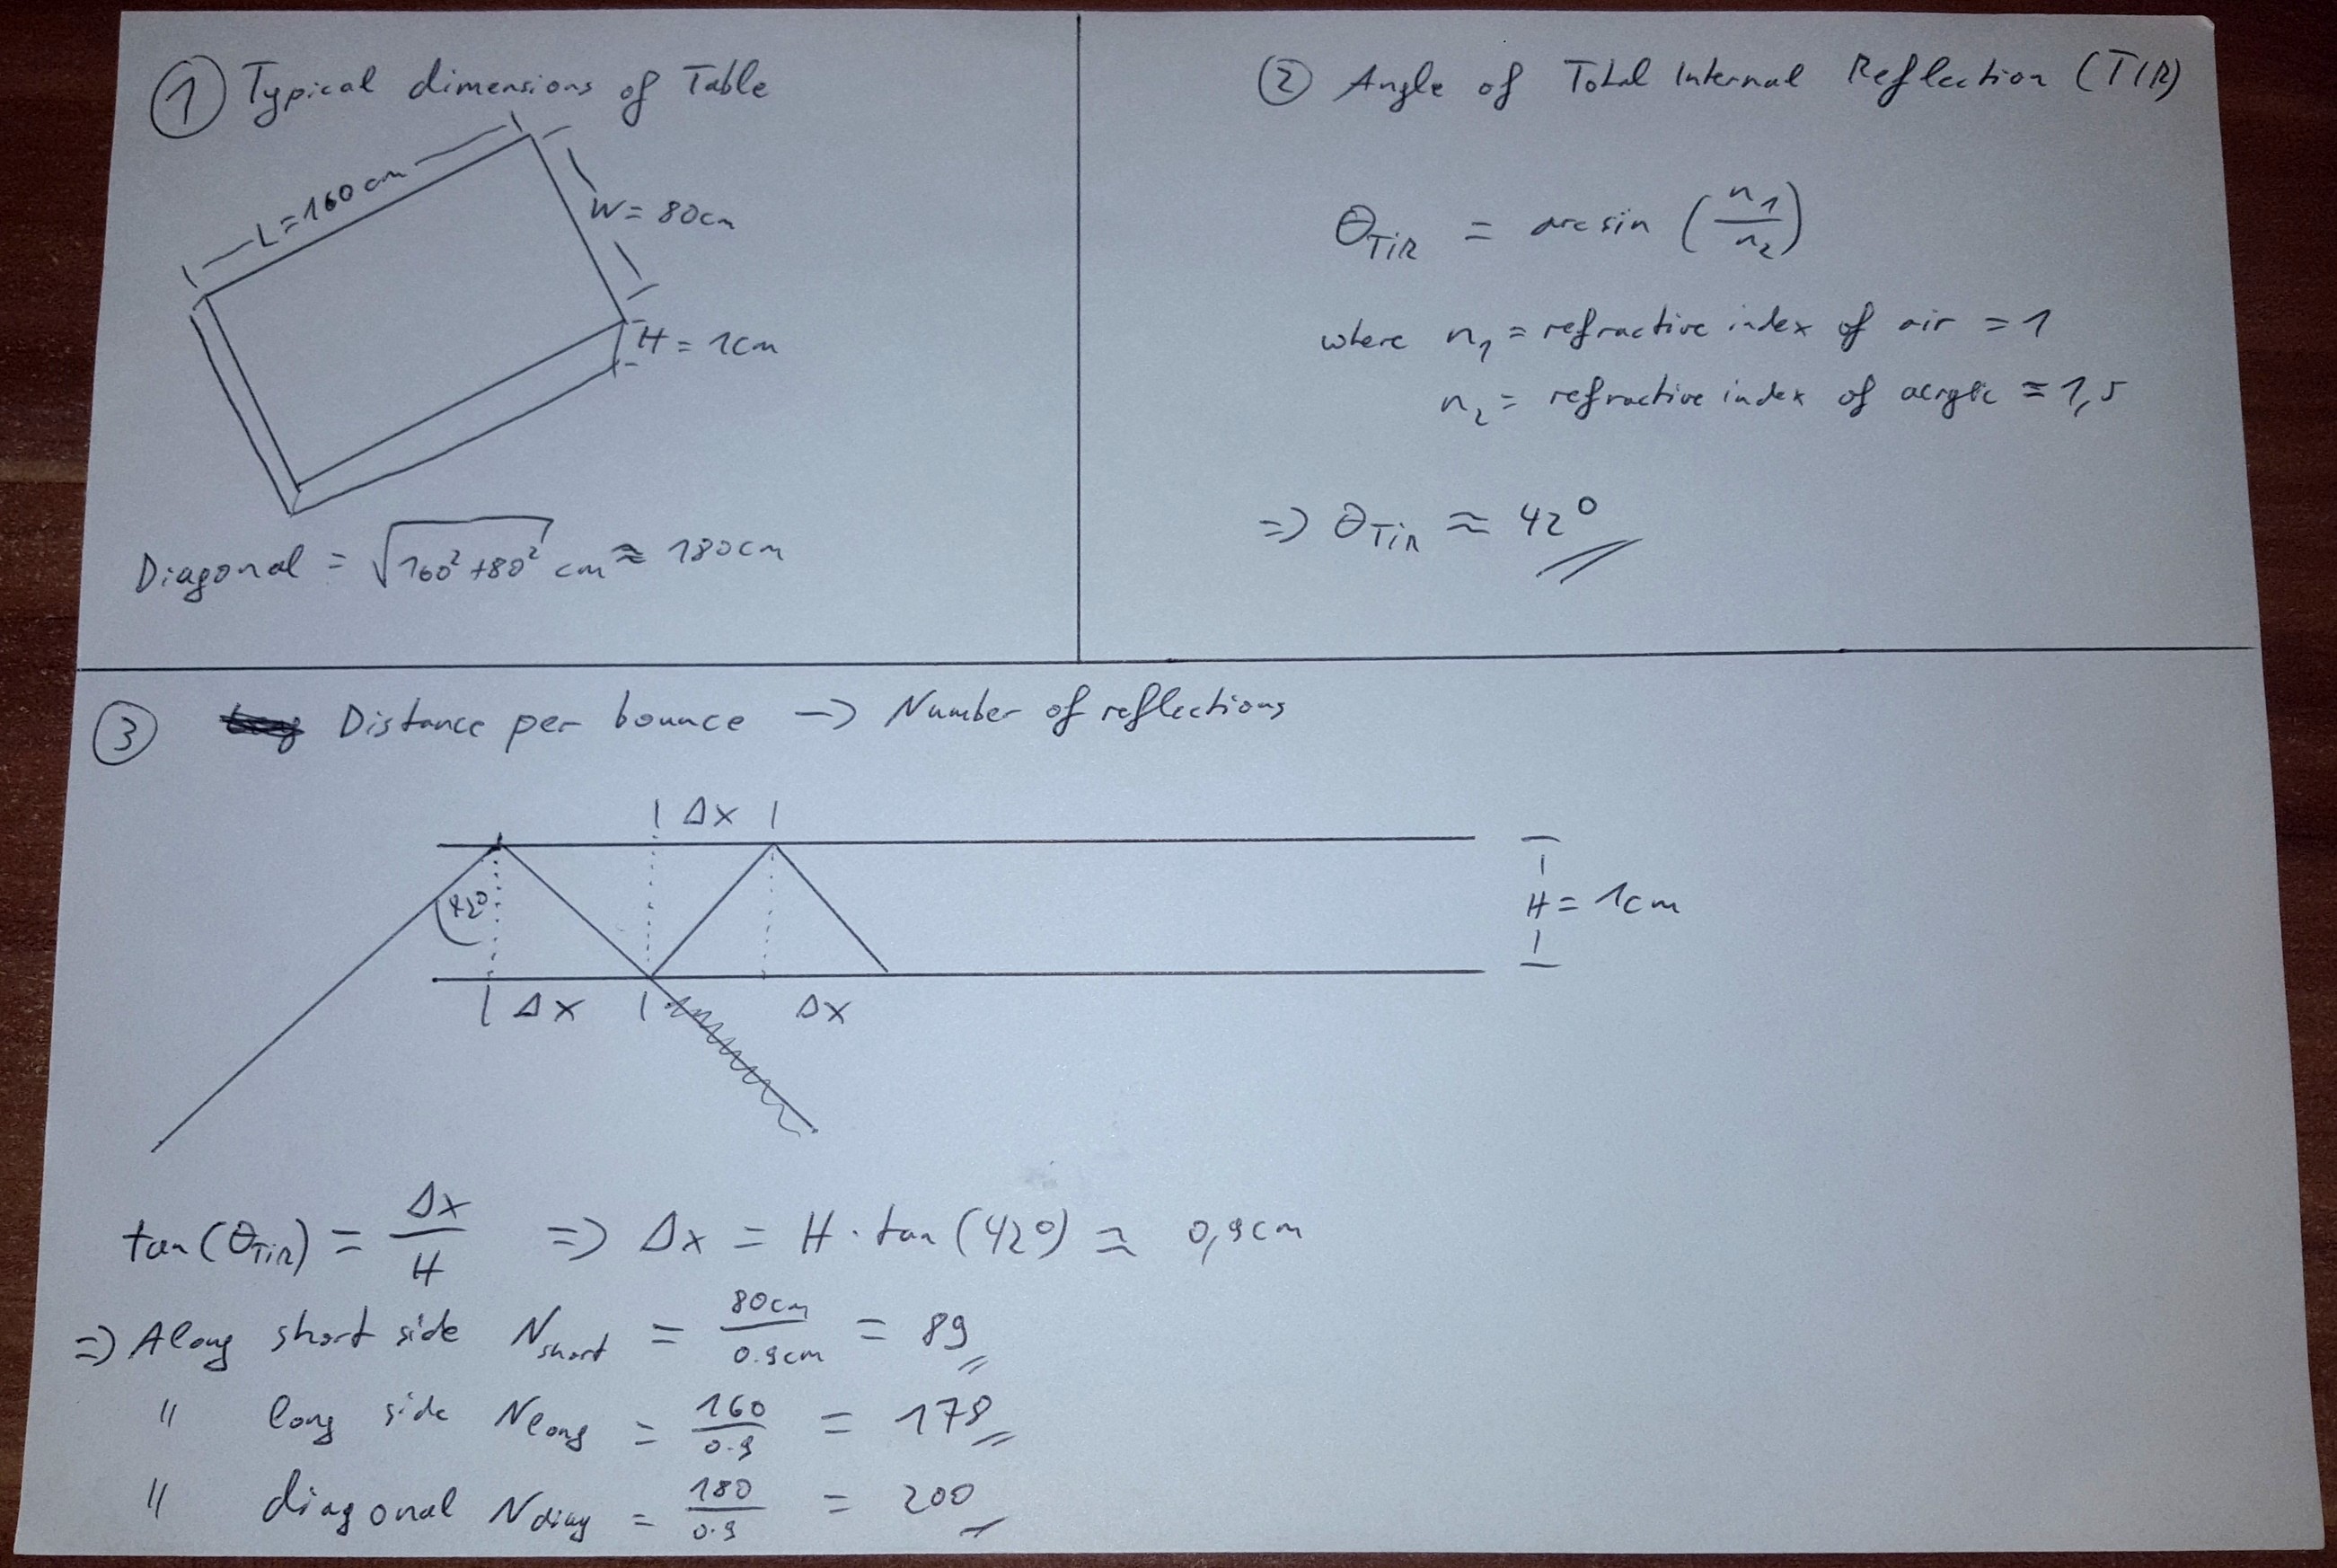 ① Typical dimensions of Table
L = 160 cm
W = 80cm
H = 1cm
Diagonal = √(160² + 80²) cm ≈ 180cm
② Angle of Total Internal Reflection (TIR)
θ_TiR = arcsin (n₁/n₂)
where n₁ = refractive index of air = 1
n₂ = refractive index of acrylic ≈ 1,5
=> θ_TiR ≈ 42°
③ Distance per bounce -> Number of reflections
Δx
42°
H = 1cm
Δx Δx
tan(θ_TiR) = Δx/H => Δx = H · tan(42°) ≈ 0,9cm
=> Along short side N_short = 80cm/0.9cm = 89
" long side N_long = 160/0.9 = 178
" diagonal N_diag = 180/0.9 = 200